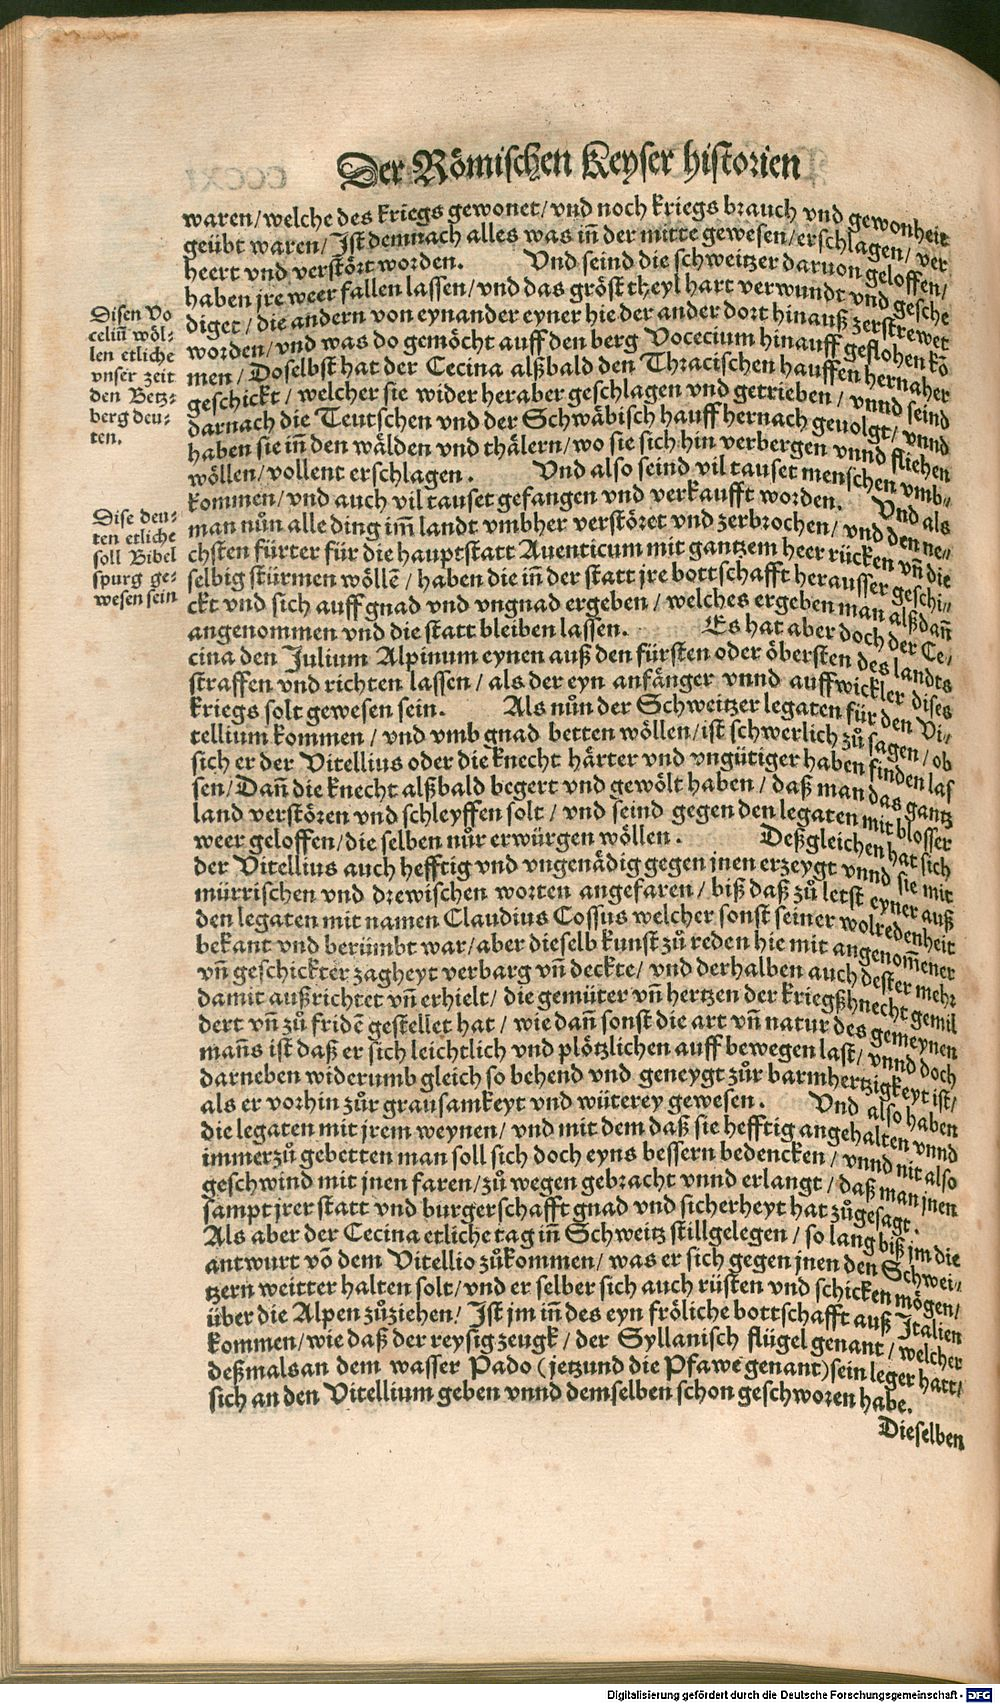 Der Römischen Keyser historien
waren/welche des kriegs gewonet/vnd noch kriegs brauch vnd gewonheit
geübt waren/Ist demnach alles was iñ der mitte gewesen/erschlagen/ ver
heert vnd verstört worden. Vnd seind die schweitzer daruon geloffen/
haben jre weer fallen lassen/vnd das gröst theyl hart verwundt vnd gesche
diget/die andern von eynander eyner hie der ander dort hinauß zerstrewet
worden/vnd was do gemöcht auff den berg Vocecium hinauff geflohen kõ
men/Doselbst hat der Cecina alßbald den Thracischen hauffen hernaher
geschickt/welcher sie wider heraber geschlagen vnd getrieben/vnnd seind
darnach die Teutschen vnd der Schwäbisch hauff hernach geuolgt/vnnd
haben sie iñ den wälden vnd thälern/wo sie sich hin verbergen vnnd fliehen
wöllen/vollent erschlagen. Vnd also seind vil tauset menschen vmb-
kommen/vnd auch vil tauset gefangen vnd verkaufft worden. Vnd als
man nůn alle ding im̃ landt vmbher verstöret vnd zerbrochen/vnd den ne-
chsten fürter für die hauptstatt Auenticum mit gantzem heer rücken vñ die
selbig stürmen wöllẽ/haben die iñ der statt jre bottschafft herausser geschi-
ckt vnd sich auff gnad vnd vngnad ergeben/welches ergeben man alß dañ
angenommen vnd die statt bleiben lassen. Es hat aber doch der Ce-
cina den Julium Alpinum eynen auß den fürsten oder öbersten des landts
straffen vnd richten lassen/als der eyn anfänger vnnd auffwickler dises
kriegs solt gewesen sein. Als nůn der Schweitzer legaten für den Vi-
tellium kommen/vnd vmb gnad betten wöllen/ist schwerlich zů sagen/ob
sich er der Vitellius oder die knecht härter vnd vngütiger haben finden las
sen/Dañ die knecht alßbald begert vnd gewölt haben/daß man das gantz
land verstören vnd schleyffen solt/vnd seind gegen den legaten mit blosser
weer geloffen/die selben nůr erwürgen wöllen. Deßgleichen hat sich
der Vitellius auch hefftig vnd vngenädig gegen jnen erzeygt vnnd sie mit
mürrischen vnd drewischen worten angefaren/biß daß zů letst eyner auß
den legaten mit namen Claudius Cossus welcher sonst seiner wolredenheit
bekant vnd berümbt war/aber dieselb kunst zů reden hie mit angenom̃ener
vñ geschickter zagheyt verbarg vñ deckte/vnd derhalben auch dester mehr
damit außrichtet vñ erhielt/die gemüter vñ hertzen der kriegßknecht gemil
dert vñ zů fridẽ gestellet hat/wie dañ sonst die art vñ natur des gemeynen
mañs ist daß er sich leichtlich vnd plötzlichen auff bewegen last/vnnd doch
darneben widerumb gleich so behend vnd geneygt zůr barmhertzigkeyt ist/
als er vorhin zůr grausamkeyt vnd wüterey gewesen. Vnd also haben
die legaten mit jrem weynen/vnd mit dem daß sie hefftig angehalten vnnd
immerzů gebetten man soll sich doch eyns bessern bedencken/vnnd nit also
geschwind mit jnen faren/zů wegen gebracht vnnd erlangt/daß man jnen
sampt jrer statt vnd burgerschafft gnad vnd sicherheyt hat zůgesagt.
Als aber der Cecina etliche tag iñ Schweitz stillgelegen/so lang biß jm die
antwurt võ dem Vitellio zůkommen/was er sich gegen jnen den Schwei-
tzern weitter halten solt/vnd er selber sich auch rüsten vnd schicken mögen/
über die Alpen zůziehen/Ist jm iñ des eyn fröliche bottschafft auß Italien
kommen/wie daß der reysig zeugk/der Syllanisch flügel genant/welcher
deßmals an dem wasser Pado (jetzund die Pfawe genant) sein leger hatt/
sich an den Vitellium geben vnnd demselben schon geschworen habe.
Dieselben
Disen Vo
celiũ wöl-
len etliche
vnser zeit
den Betz-
berg deu-
ten.
Dise deu-
ten etliche
soll Bibel
spurg ge-
wesen sein
Digitalisierung gefördert durch die Deutsche Forschungsgemeinschaft - DFG